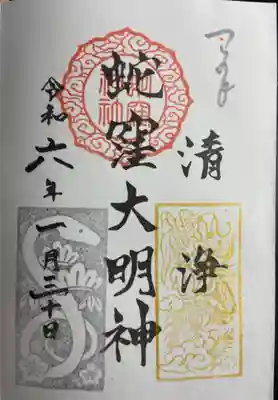 清浄
蛇窪大明神
令和六年一月三十日